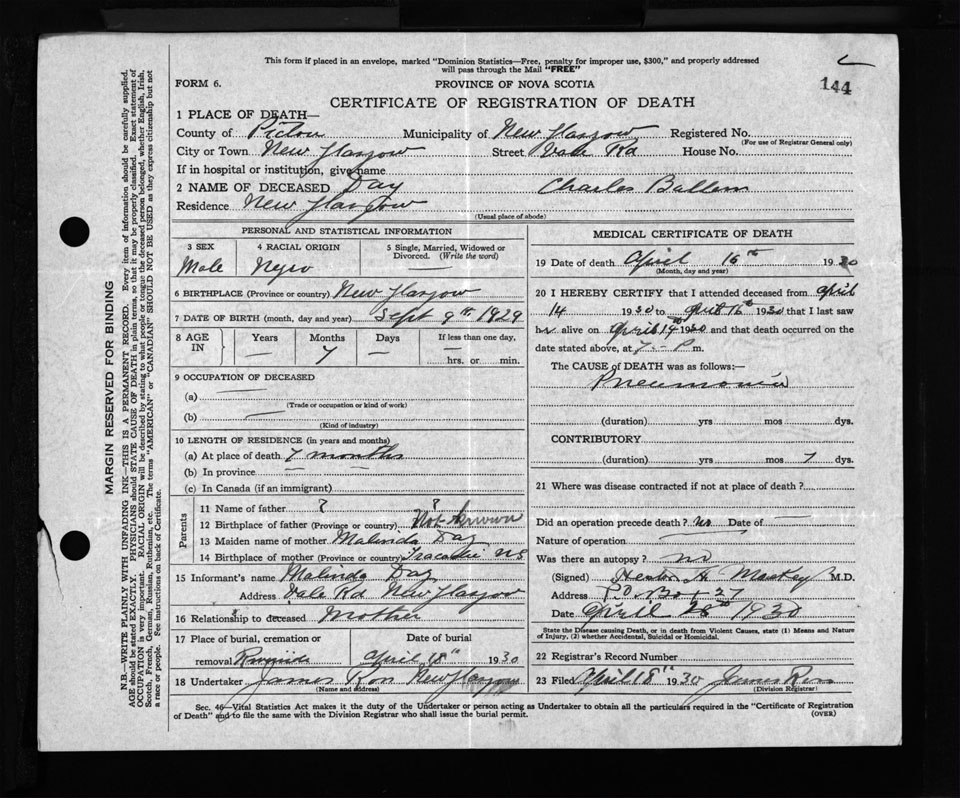 This form if placed in an envelope, marked "Dominion Statistics—Free, penalty for improper use, $300," and properly addressed
will pass through the Mail "FREE"
144
FORM 6.
PROVINCE OF NOVA SCOTIA
CERTIFICATE OF REGISTRATION OF DEATH
1 PLACE OF DEATH—
County of Pictou Municipality of New Glasgow Registered No.
(For use of Registrar General only)
City or Town New Glasgow Street Vale Rd House No.
If in hospital or institution, give name
2 NAME OF DECEASED Day Charles Ballem
Residence New Glasgow
(Usual place of abode)
PERSONAL AND STATISTICAL INFORMATION
3 SEX 4 RACIAL ORIGIN 5 Single, Married, Widowed or
Divorced. (Write the word)
Male Negro —
6 BIRTHPLACE (Province or country) New Glasgow
7 DATE OF BIRTH (month, day and year) Sept 9th 1929
8 AGE IN Years Months Days If less than one day,
— 7 — hrs. or min.
9 OCCUPATION OF DECEASED
(a) —
(Trade or occupation or kind of work)
(b) —
(Kind of industry)
10 LENGTH OF RESIDENCE (in years and months)
(a) At place of death 7 months
(b) In province — —
(c) In Canada (if an immigrant)
Parents
11 Name of father ? ?
12 Birthplace of father (Province or country) Not known
13 Maiden name of mother Malinda Day
14 Birthplace of mother (Province or country) Tracadie NS
15 Informant's name Malinda Day
Address Vale Rd New Glasgow
16 Relationship to deceased Mother
17 Place of burial, cremation or Date of burial
removal April 18th 1930
18 Undertaker James Ross New Glasgow
(Name and address)
MEDICAL CERTIFICATE OF DEATH
19 Date of death April 16th 1930
(Month, day and year)
20 I HEREBY CERTIFY that I attended deceased from April
14 1930 to April 16th 1930 that I last saw
h alive on April 1930 and that death occurred on
the date stated above, at 7 — P m.
The CAUSE of DEATH was as follows:—
Pneumonia
(duration) yrs mos dys.
CONTRIBUTORY
(duration) yrs mos 7 dys.
21 Where was disease contracted if not at place of death?
Did an operation precede death? no Date of —
Nature of operation —
Was there an autopsy? no
(Signed) H. Mackey M.D.
Address P O Box 27
Date April 28th 1930
State the Disease causing Death, or in death from Violent Causes, state (1) Means and Nature
of Injury, (2) whether Accidental, Suicidal or Homicidal.
22 Registrar's Record Number
23 Filed April 18th 1930 James Ross
(Division Registrar)
Sec. 46—Vital Statistics Act makes it the duty of the Undertaker or person acting as Undertaker to obtain all the particulars required in the "Certificate of Registration
of Death" and to file the same with the Division Registrar who shall issue the burial permit. (OVER)
MARGIN RESERVED FOR BINDING
N.B.—WRITE PLAINLY WITH UNFADING INK—THIS IS A PERMANENT RECORD. Every item of information should be carefully supplied.
AGE should be stated EXACTLY. PHYSICIANS should STATE CAUSE OF DEATH in plain terms, so that it may be properly classified. Exact statement of
OCCUPATION is very important. RACIAL ORIGIN will be described by stating to what people or tongue the deceased person belonged, whether English, Irish,
Scotch, French, German, Russian, Ruthenian, etc. The terms "AMERICAN" or "CANADIAN" SHOULD NOT BE USED as they express citizenship but not
a race or people. See instructions on back of Certificate.